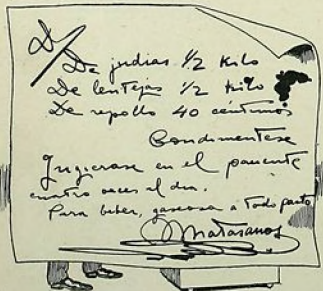 D/
De judias 1/2 Kilo
De lentejas 1/2 kilo
De repollo 40 céntimos
Condimentese
Ingierase en el paciente
cuatro veces al dia.
Para beber, gaseosa a Todo pasto
Matasanos